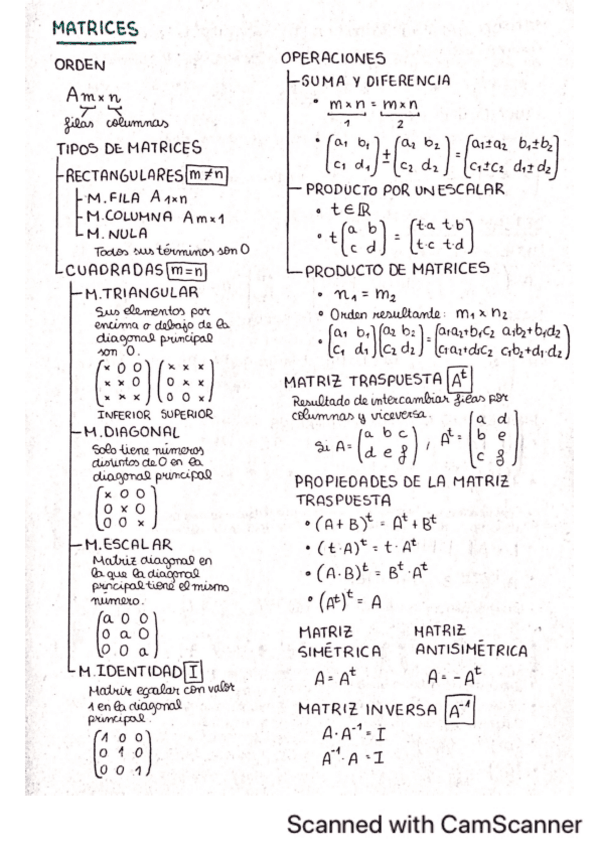 MATRICES
ORDEN
Am×n
filas columnas
TIPOS DE MATRICES
RECTANGULARES m≠n
M. FILA A1×n
M. COLUMNA Am×1
M. NULA
Todos sus términos son 0
CUADRADAS m=n
M. TRIANGULAR
Sus elementos por
encima o debajo de la
diagonal principal
son 0.
(x 0 0) (x x x)
(x x 0) (0 x x)
(x x x) (0 0 x)
INFERIOR SUPERIOR
M. DIAGONAL
Solo tiene números
distintos de 0 en la
diagonal principal
(x 0 0)
(0 x 0)
(0 0 x)
M. ESCALAR
Matriz diagonal en
la que la diagonal
principal tiene el mismo
número.
(a 0 0)
(0 a 0)
(0 0 a)
M. IDENTIDAD I
Matriz escalar con valor
1 en la diagonal
principal.
(1 0 0)
(0 1 0)
(0 0 1)
OPERACIONES
SUMA Y DIFERENCIA
• m×n = m×n
1 2
• (a₁ b₁) ± (a₂ b₂) = (a₁±a₂ b₁±b₂)
(c₁ d₁) (c₂ d₂) (c₁±c₂ d₁±d₂)
PRODUCTO POR UN ESCALAR
• t∈ℝ
• t (a b) = (t·a t·b)
(c d) (t·c t·d)
PRODUCTO DE MATRICES
• n₁ = m₂
• Orden resultante: m₁ x n₂
• (a₁ b₁)(a₂ b₂) = (a₁a₂+b₁c₂ a₁b₂+b₁d₂)
(c₁ d₁)(c₂ d₂) (c₁a₂+d₁c₂ c₁b₂+d₁·d₂)
MATRIZ TRASPUESTA Aᵗ
Resultado de intercambiar filas por
columnas y viceversa.
Si A = (a b c) , Aᵗ = (a d)
(d e f) (b e)
(c f)
PROPIEDADES DE LA MATRIZ
TRASPUESTA
• (A+B)ᵗ = Aᵗ + Bᵗ
• (t·A)ᵗ = t·Aᵗ
• (A·B)ᵗ = Bᵗ·Aᵗ
• (Aᵗ)ᵗ = A
MATRIZ SIMÉTRICA
A = Aᵗ
MATRIZ ANTISIMÉTRICA
A = -Aᵗ
MATRIZ INVERSA A⁻¹
A·A⁻¹ = I
A⁻¹·A = I
Scanned with CamScanner